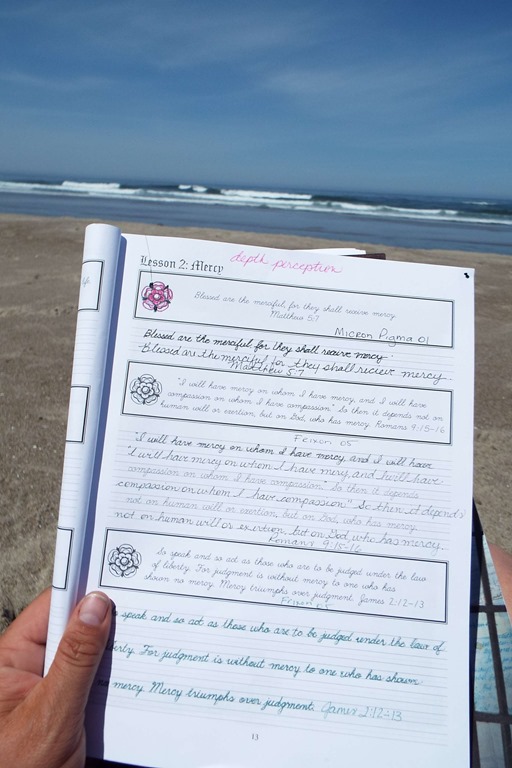 Lesson 2: Mercy depth perception
Blessed are the merciful, for they shall receive mercy.
Matthew 5:7
Micron Pigma 01
Blessed are the merciful for they shall receive mercy.
Blessed are the merciful for they shall recieve mercy
Matthew 5:7
"I will have mercy on whom I have mercy, and I will have
compassion on whom I have compassion." So then it depends not on
human will or exertion, but on God, who has mercy. Romans 9:15-16
05
"I will have mercy on whom I have mercy, and I will have
"I will have mercy on whom I have mercy, and I will have
compassion on whom I have compassion." So then it depends
compassion on whom I have compassion." So then it depends
not on human will or exertion, but on God, who has mercy.
not on human will or exertion, but on God, who has mercy.
Romans 9:15-16
So speak and so act as those who are to be judged under the law
of liberty. For judgment is without mercy to one who has
shown no mercy. Mercy triumphs over judgment. James 2:12-13
speak and so act as those who are to be judged under the law of
For judgment is without mercy to one who has shown
mercy Mercy triumphs over judgment. James 2:12-13
13